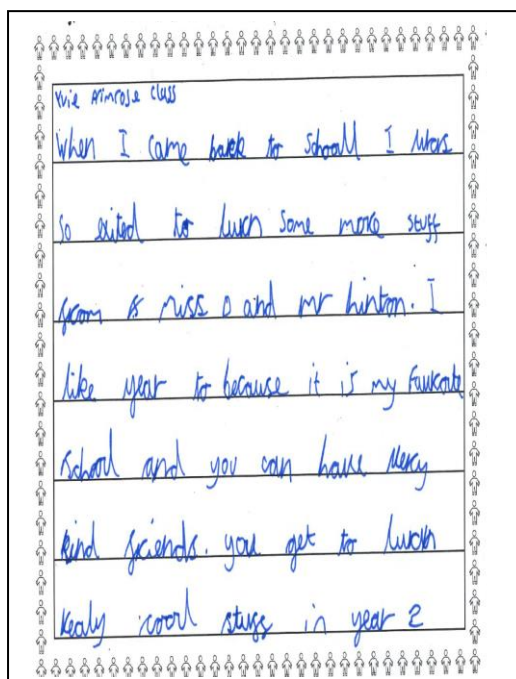 Evie primrose class
when I came back to school I was
so exited to lurn some more stuff
from miss O and mr hinton. I
like year to because it is my faurorte
school and you can have very
kind friends. you get to lurn
realy cool stuff in year 2